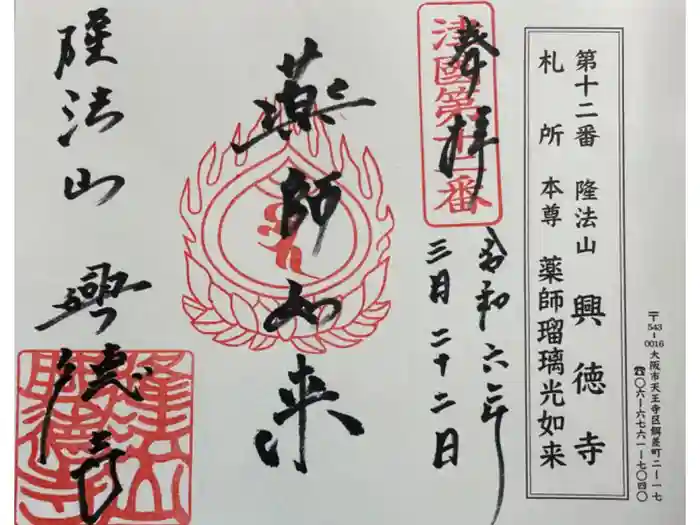 〒543-0016 大阪市天王寺区餌差町二ー一七
☎〇六ー六七六一ー七〇四〇
第十二番 隆法山 興徳寺
札所 本尊 薬師瑠璃光如来
奉拝
津國第十二番
令和六年
三月二十二日
薬師如来
隆法山 興徳寺
隆法山
興徳寺